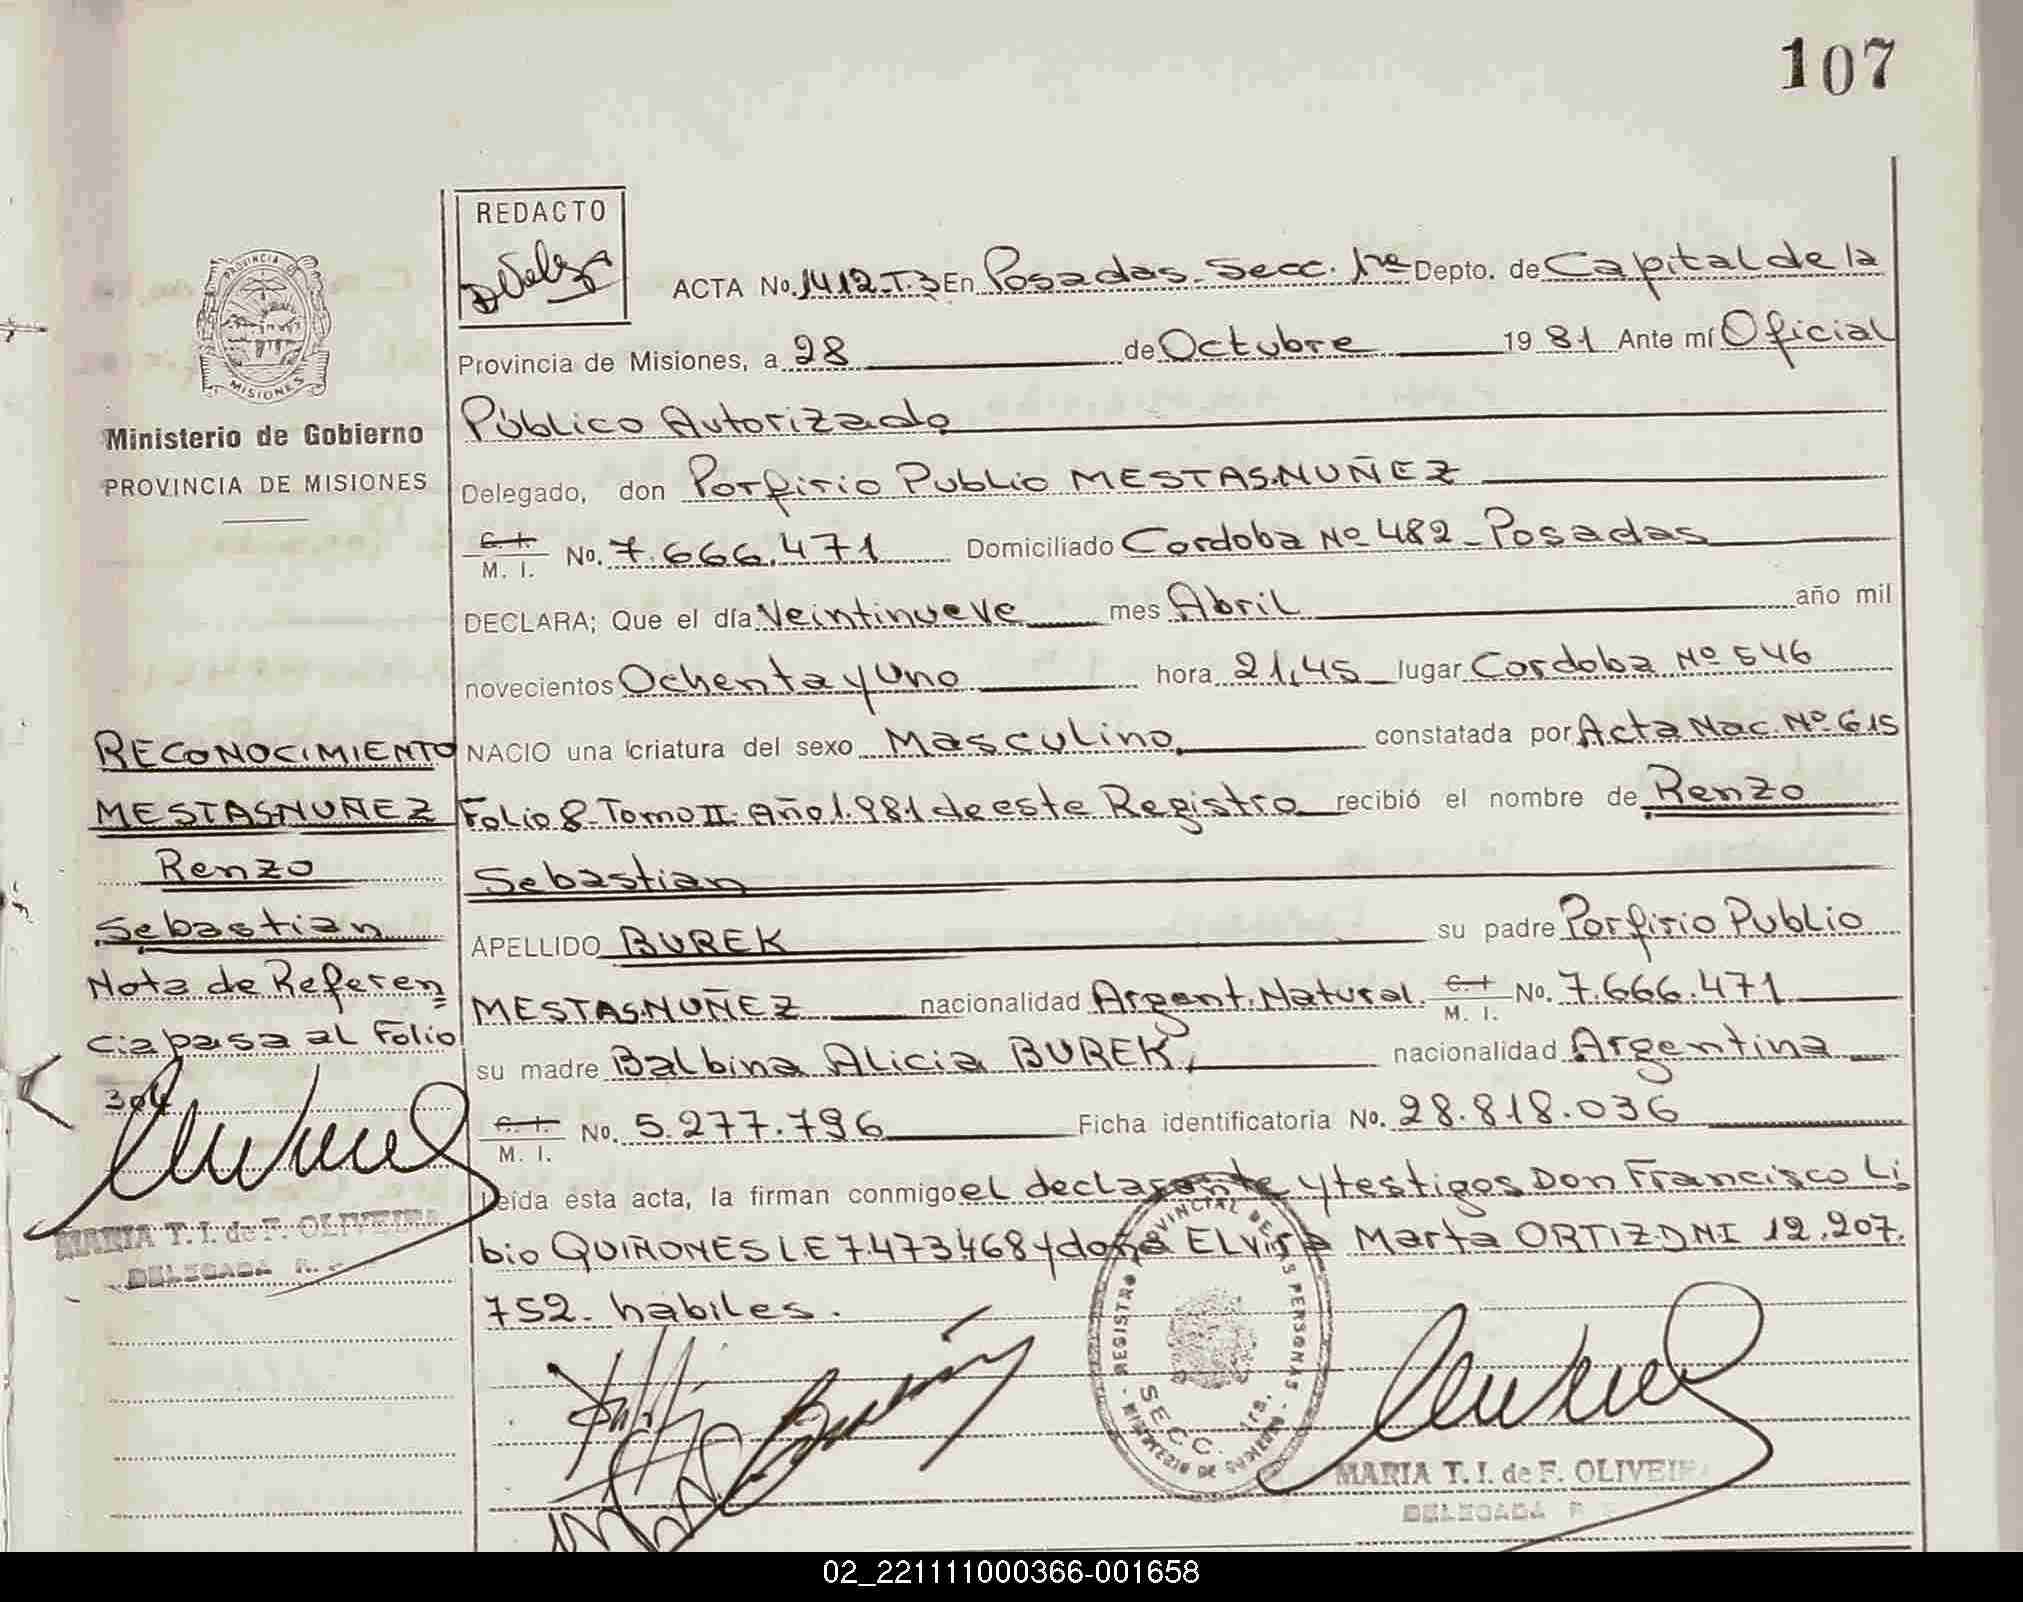 107
REDACTO
PROVINCIA DE
MISIONES
Ministerio de Gobierno
PROVINCIA DE MISIONES
ACTA No. 1412-T.3 En Posadas-Secc. 1ra Depto. de Capital de la
Provincia de Misiones, a 28 de Octubre 1981 Ante mí Oficial
Público Autorizado
Delegado, don Porfirio Publio MESTAS.NUÑEZ
C. I.
M. I. No. 7.666.471 Domiciliado Cordoba Nº 482-Posadas
DECLARA; Que el día Veintinueve mes Abril año mil
novecientos Ochenta y Uno hora 21,45 lugar Cordoba Nº 546
NACIO una criatura del sexo Masculino constatada por Acta Nac. Nº 615
Folio 8-Tomo II-Año 1.981 de este Registro recibió el nombre de Renzo
Sebastian
APELLIDO BUREK su padre Porfirio Publio
MESTAS.NUÑEZ nacionalidad Argent. Natural. C. I. M. I. No. 7.666.471
su madre Balbina Alicia BUREK, nacionalidad Argentina
C. I.
M. I. No. 5.277.796 Ficha identificatoria No. 28.818.036
Leída esta acta, la firman conmigo el declarante y testigos Don Francisco Li
bio QUIÑONES LE 7473468 y doña ELvira Marta ORTIZ DNI 12.207.
752- habiles.
RECONOCIMIENTO
MESTAS.NUÑEZ
Renzo
Sebastian
Nota de Referen
cia pasa al Folio
304
MARIA T. I. de F. OLIVEIRA
DELEGADA R.
REGISTRO PROVINCIAL DE LAS PERSONAS
MINISTERIO DE GOBIERNO
SECC. 1ra.
MARIA T. I. de F. OLIVEIRA
DELEGADA R
02_221111000366-001658